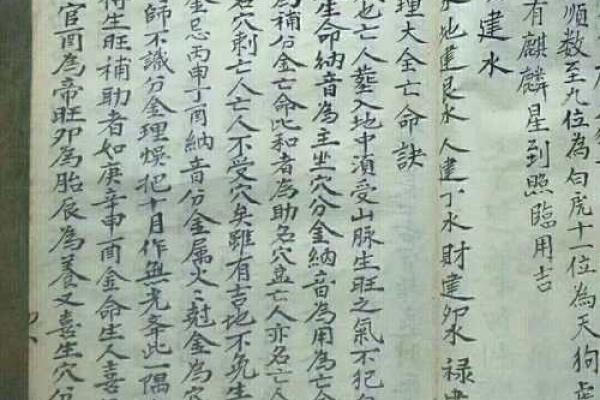 順数至九位為勾虎十一位為天狗虎
有麒麟星到照臨用吉
建水
水地建艮水人建丁水財建卯水禄
理大全亡命訣
也亡人葬入地中須受山脉生旺之氣不犯
生命納音為主坐穴分金納音為用為亡
為補分金亡命比和者為助名穴益亡人亦名亡人
名穴刺亡人亡人不受穴矣雖有吉地不免生
金忌丙申丁酉納音分金属火火尅金為
師不識分金理悞把十月作無光奔此一隅
得生旺補助者如庚辛申酉金命生人喜
官酉為帝旺卯為胎辰為養又喜生穴